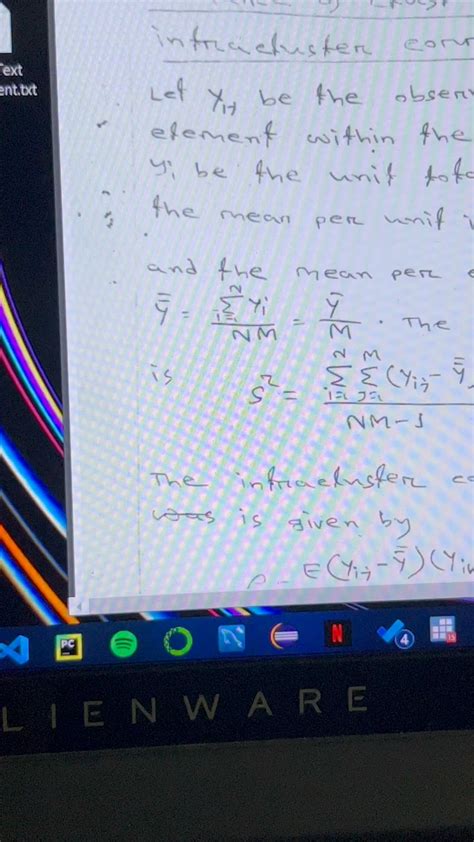 Text
ent.txt
intracluster corr
Let y_ij be the observ
element within the
y_i be the unit tota
the mean per unit i
and the mean per e
ȳ̄ = Σ_{i=1}^{N} y_i / NM = ȳ / M . The
is S² = Σ_{i=1}^{N} Σ_{j=1}^{M} (y_ij - ȳ̄ / NM-1
The intracluster co
is given by
E(y_ij - ȳ̄)(y_i
PC
N
4
15
LIENWARE